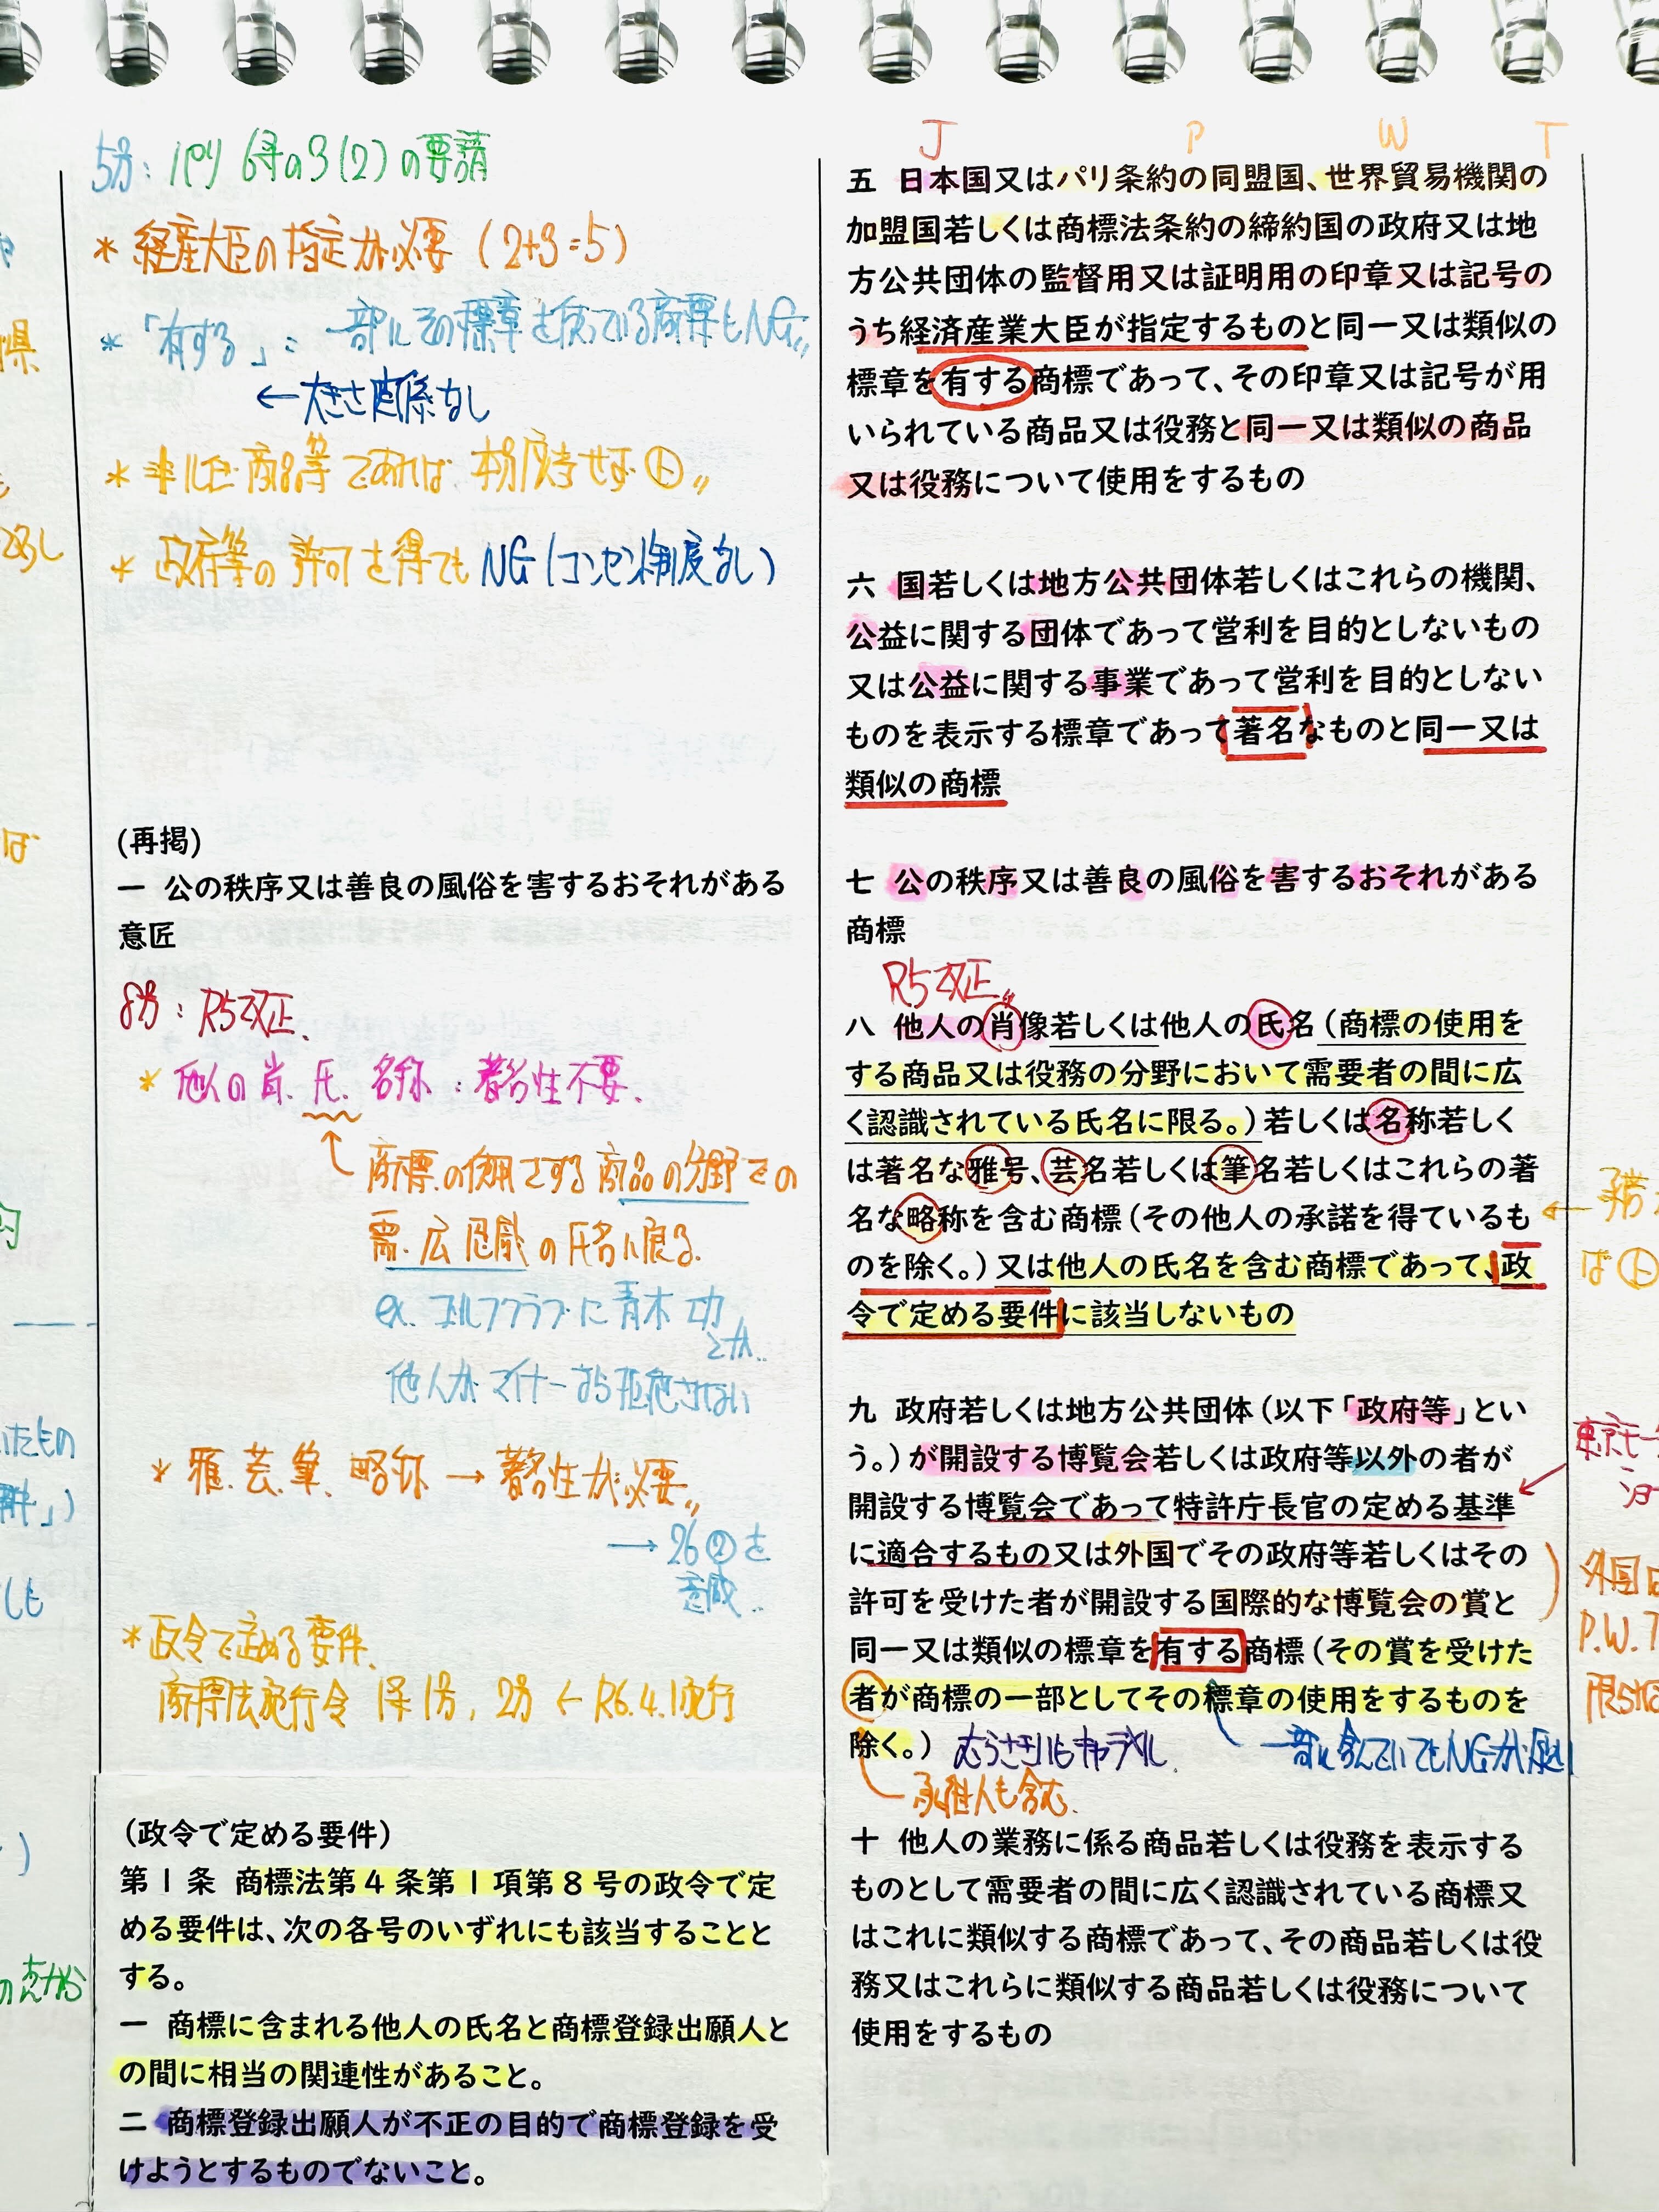 5号：パリ6条の3(2)の要請
＊経産大臣の指定が必要（2+3=5）
＊「有する」：一部にその標章を使っている商標もNG〃
←大きさ関係なし
＊非ルイ商品等であれば本号適せず
＊政府等の許可を得てもNG（コンセント制度なし）
(再掲)
一 公の秩序又は善良の風俗を害するおそれがある
意匠
8号：R5改正、
＊他人の肖、氏、名称：著名性不要、
↑商標の使用をする商品の分野での
需、広認識の氏名に限る、
ex. ゴルフクラブに青木功
とか..
他人がマイナーなら拒絶されない
＊雅、芸、筆、略称→著名性が必要〃
→26②を
意識..
＊政令で定める要件、
商標法施行令1条1号，2号←R6.4.1施行
（政令で定める要件）
第1条 商標法第4条第1項第8号の政令で定
める要件は、次の各号のいずれにも該当することと
する。
一 商標に含まれる他人の氏名と商標登録出願人と
の間に相当の関連性があること。
二 商標登録出願人が不正の目的で商標登録を受
けようとするものでないこと。
J P W T
五 日本国又はパリ条約の同盟国、世界貿易機関の
加盟国若しくは商標法条約の締約国の政府又は地
方公共団体の監督用又は証明用の印章又は記号の
うち経済産業大臣が指定するものと同一又は類似の
標章を有する商標であって、その印章又は記号が用
いられている商品又は役務と同一又は類似の商品
又は役務について使用をするもの
六 国若しくは地方公共団体若しくはこれらの機関、
公益に関する団体であって営利を目的としないもの
又は公益に関する事業であって営利を目的としない
ものを表示する標章であって著名なものと同一又は
類似の商標
七 公の秩序又は善良の風俗を害するおそれがある
商標
R5改正〃
八 他人の肖像若しくは他人の氏名（商標の使用を
する商品又は役務の分野において需要者の間に広
く認識されている氏名に限る。）若しくは名称若しく
は著名な雅号、芸名若しくは筆名若しくはこれらの著
名な略称を含む商標（その他人の承諾を得ているも
のを除く。）又は他人の氏名を含む商標であって、政
令で定める要件に該当しないもの
九 政府若しくは地方公共団体（以下「政府等」とい
う。）が開設する博覧会若しくは政府等以外の者が
開設する博覧会であって特許庁長官の定める基準
に適合するもの又は外国でその政府等若しくはその
許可を受けた者が開設する国際的な博覧会の賞と
同一又は類似の標章を有する商標（その賞を受けた
者が商標の一部としてその標章の使用をするものを
除く。）
一部に含んでいてもNGが原則
承継人も含む、
十 他人の業務に係る商品若しくは役務を表示する
ものとして需要者の間に広く認識されている商標又
はこれに類似する商標であって、その商品若しくは役
務又はこれらに類似する商品若しくは役務について
使用をするもの
外国は
P.W.T